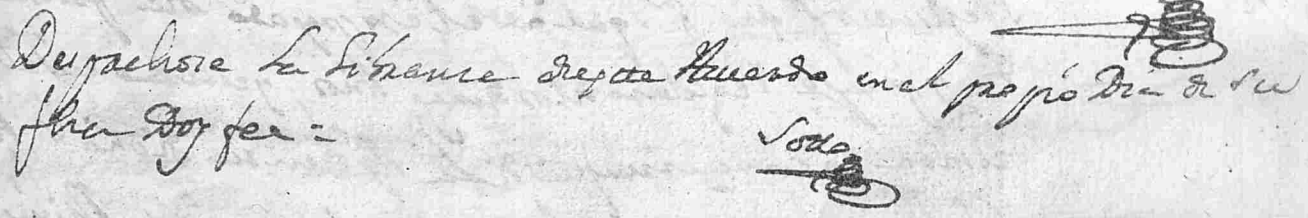 Despachose La Libranza de este Acuerdo en el propio Dia de su
fha Doy fee =
Sotto